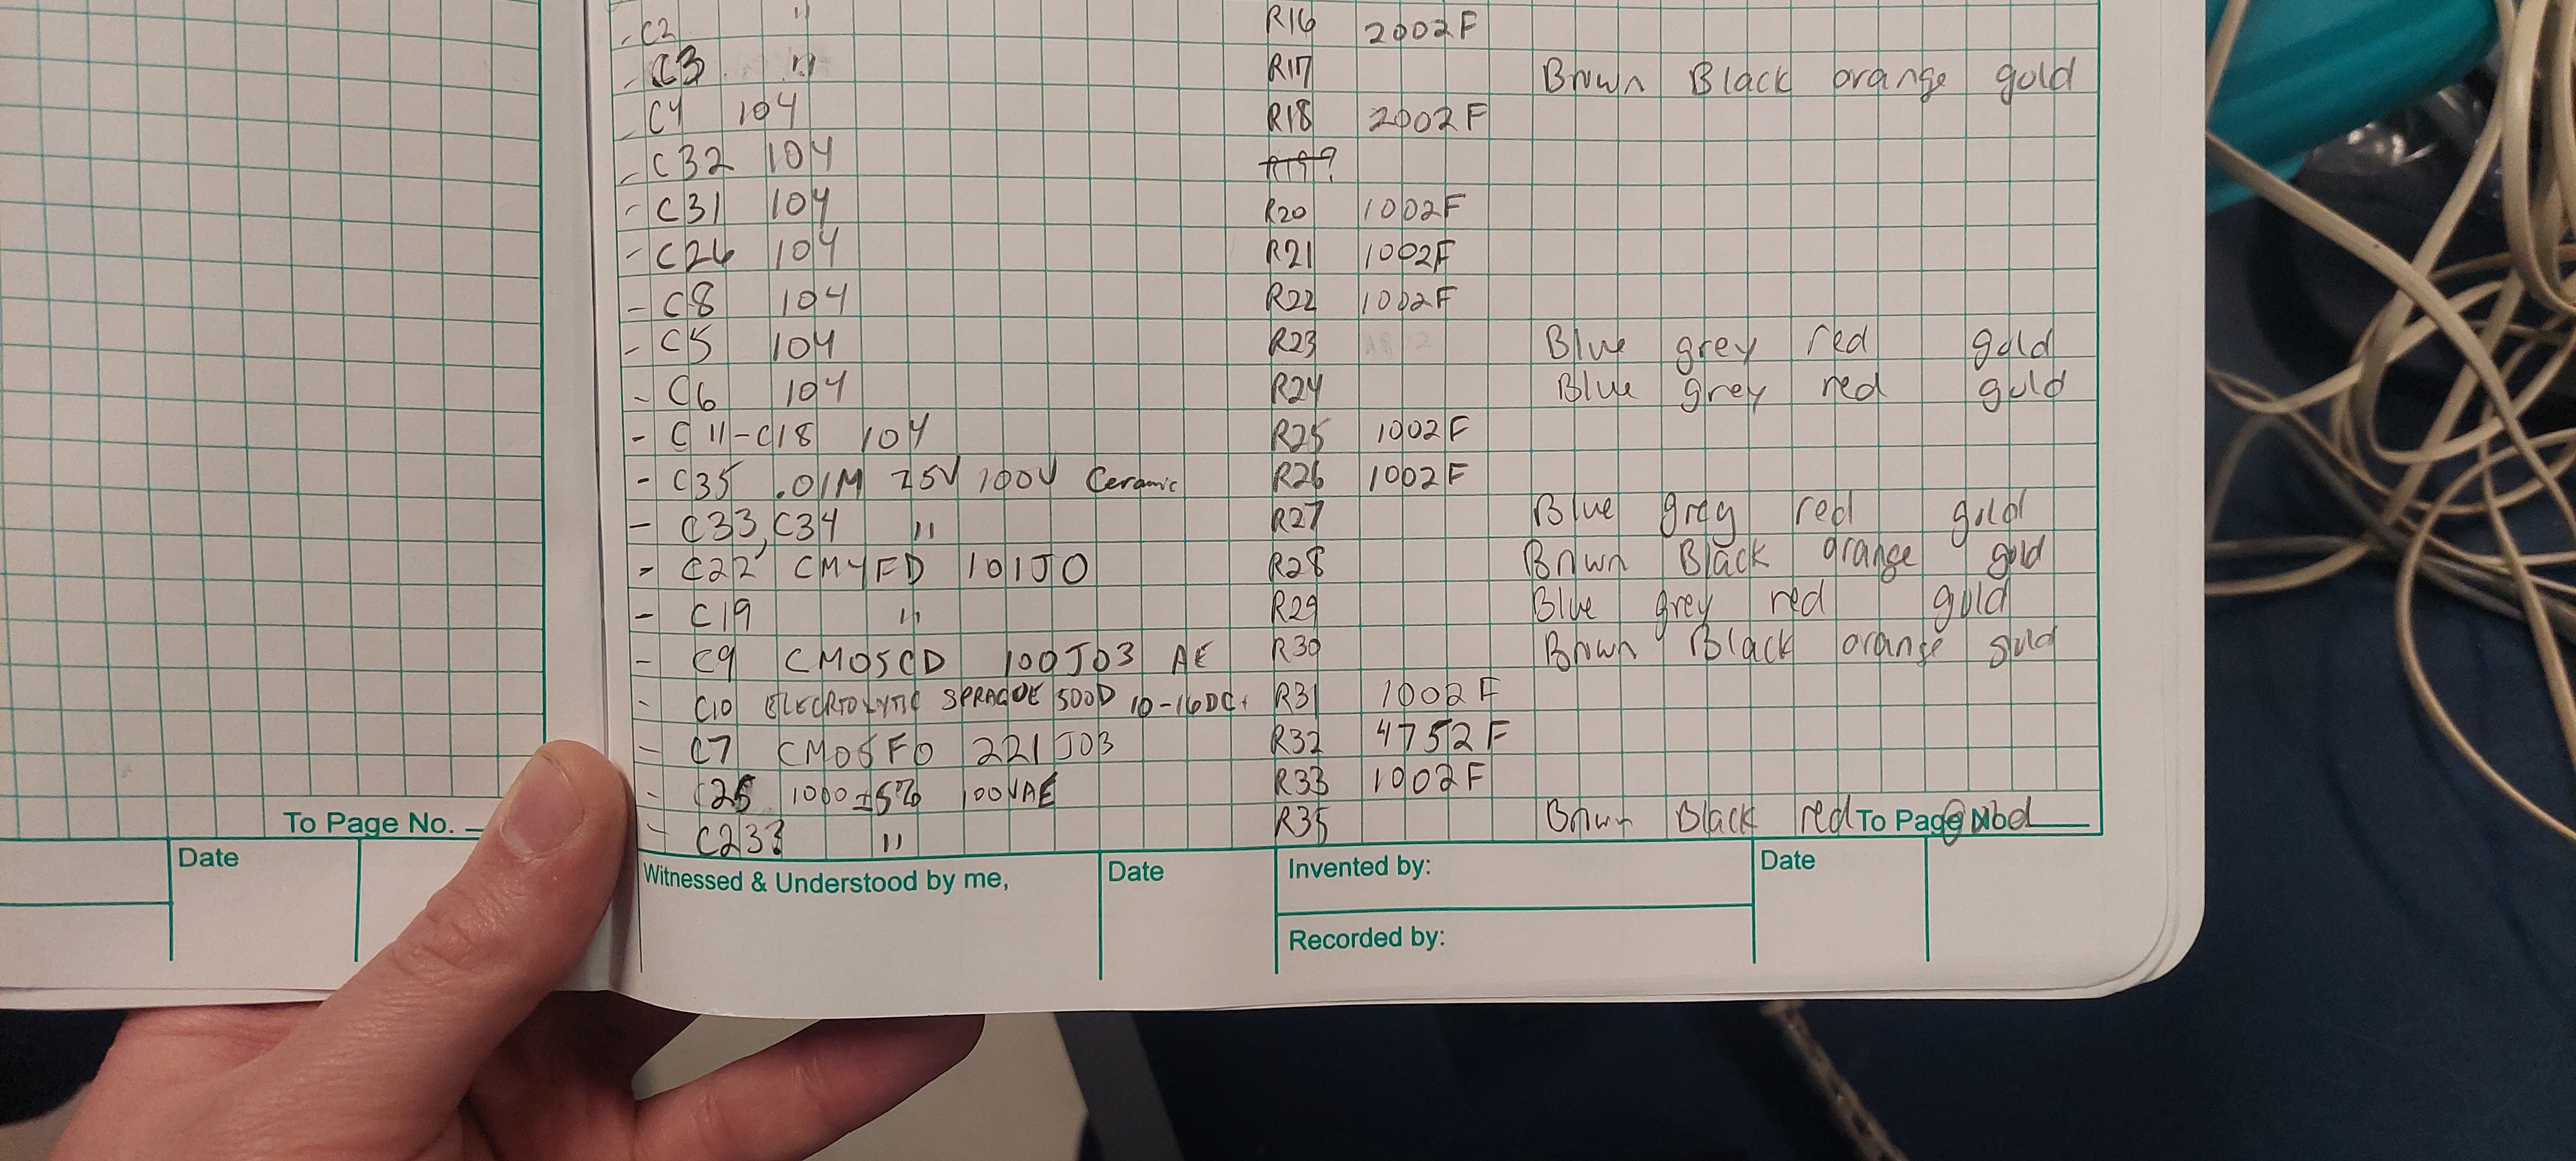 - C2 "
- C3 "
- C4 104
- C32 104
- C31 104
- C26 104
- C8 104
- C5 104
- C6 104
- C11-C18 104
- C35 .01M Z5V 100V Ceramic
- C33, C34 "
- C22 CM4FD 101J0
- C19 "
- C9 CM05CD 100J03 AE
- C10 ELECRTOLYTIC SPRAGUE 500D 10-16DC+
- C7 CM05FD 221J03
- C25 1000 ±5% 100VAE
- "
R16 2002F
R17 Brown Black orange gold
R18 2002F
R19?
R20 1002F
R21 1002F
R22 1002F
R23 Blue grey red gold
R24 Blue grey red gold
R25 1002F
R26 1002F
R27 Blue grey red gold
R28 Brown Black orange gold
R29 Blue grey red gold
R30 Brown Black orange gold
R31 1002F
R32 4752F
R33 1002F
R35 Brown Black red gold
To Page No.
To Page No.
Date
Witnessed & Understood by me,
Date
Invented by:
Date
Recorded by: